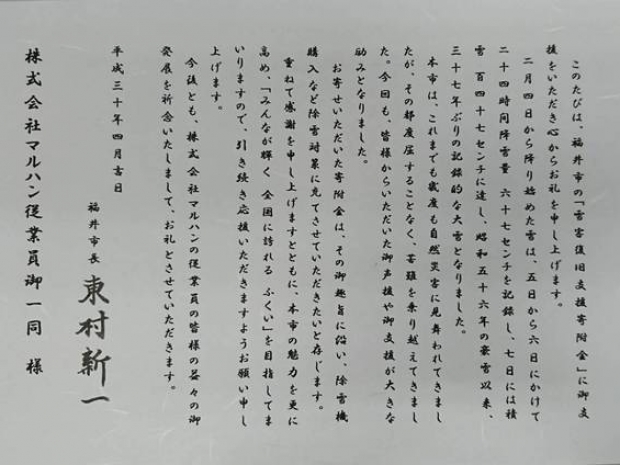 このたびは、福井市の「雪害復旧支援寄附金」に御支
援をいただき心からお礼を申し上げます。
二月四日から降り始めた雪は、五日から六日にかけて
二十四時間降雪量　六十七センチを記録し、七日には積
雪　百四十七センチに達し、昭和五十六年の豪雪以来、
三十七年ぶりの記録的な大雪となりました。
本市は、これまでも幾度も自然災害に見舞われてきまし
たが、その都度屈することなく、苦難を乗り越えてきまし
た。今回も、皆様からいただいた御声援や御支援が大きな
助みとなりました。
お寄せいただいた寄附金は、その御趣旨に沿い、除雪機
購入など除雪対策に充てさせていただきたいと存じます。
重ねて感謝を申し上げますとともに、本市の魅力を更に
高め、「みんなが輝く　全国に誇れる　ふくい」を目指してま
いりますので、引き続き応援いただきますようお願い申し
上げます。
今後とも、株式会社マルハンの従業員の皆様の益々の御
発展を祈念いたしまして、お礼とさせていただきます。
平成三十年四月吉日
福井市長　東村新一
株式会社マルハン従業員御一同　様